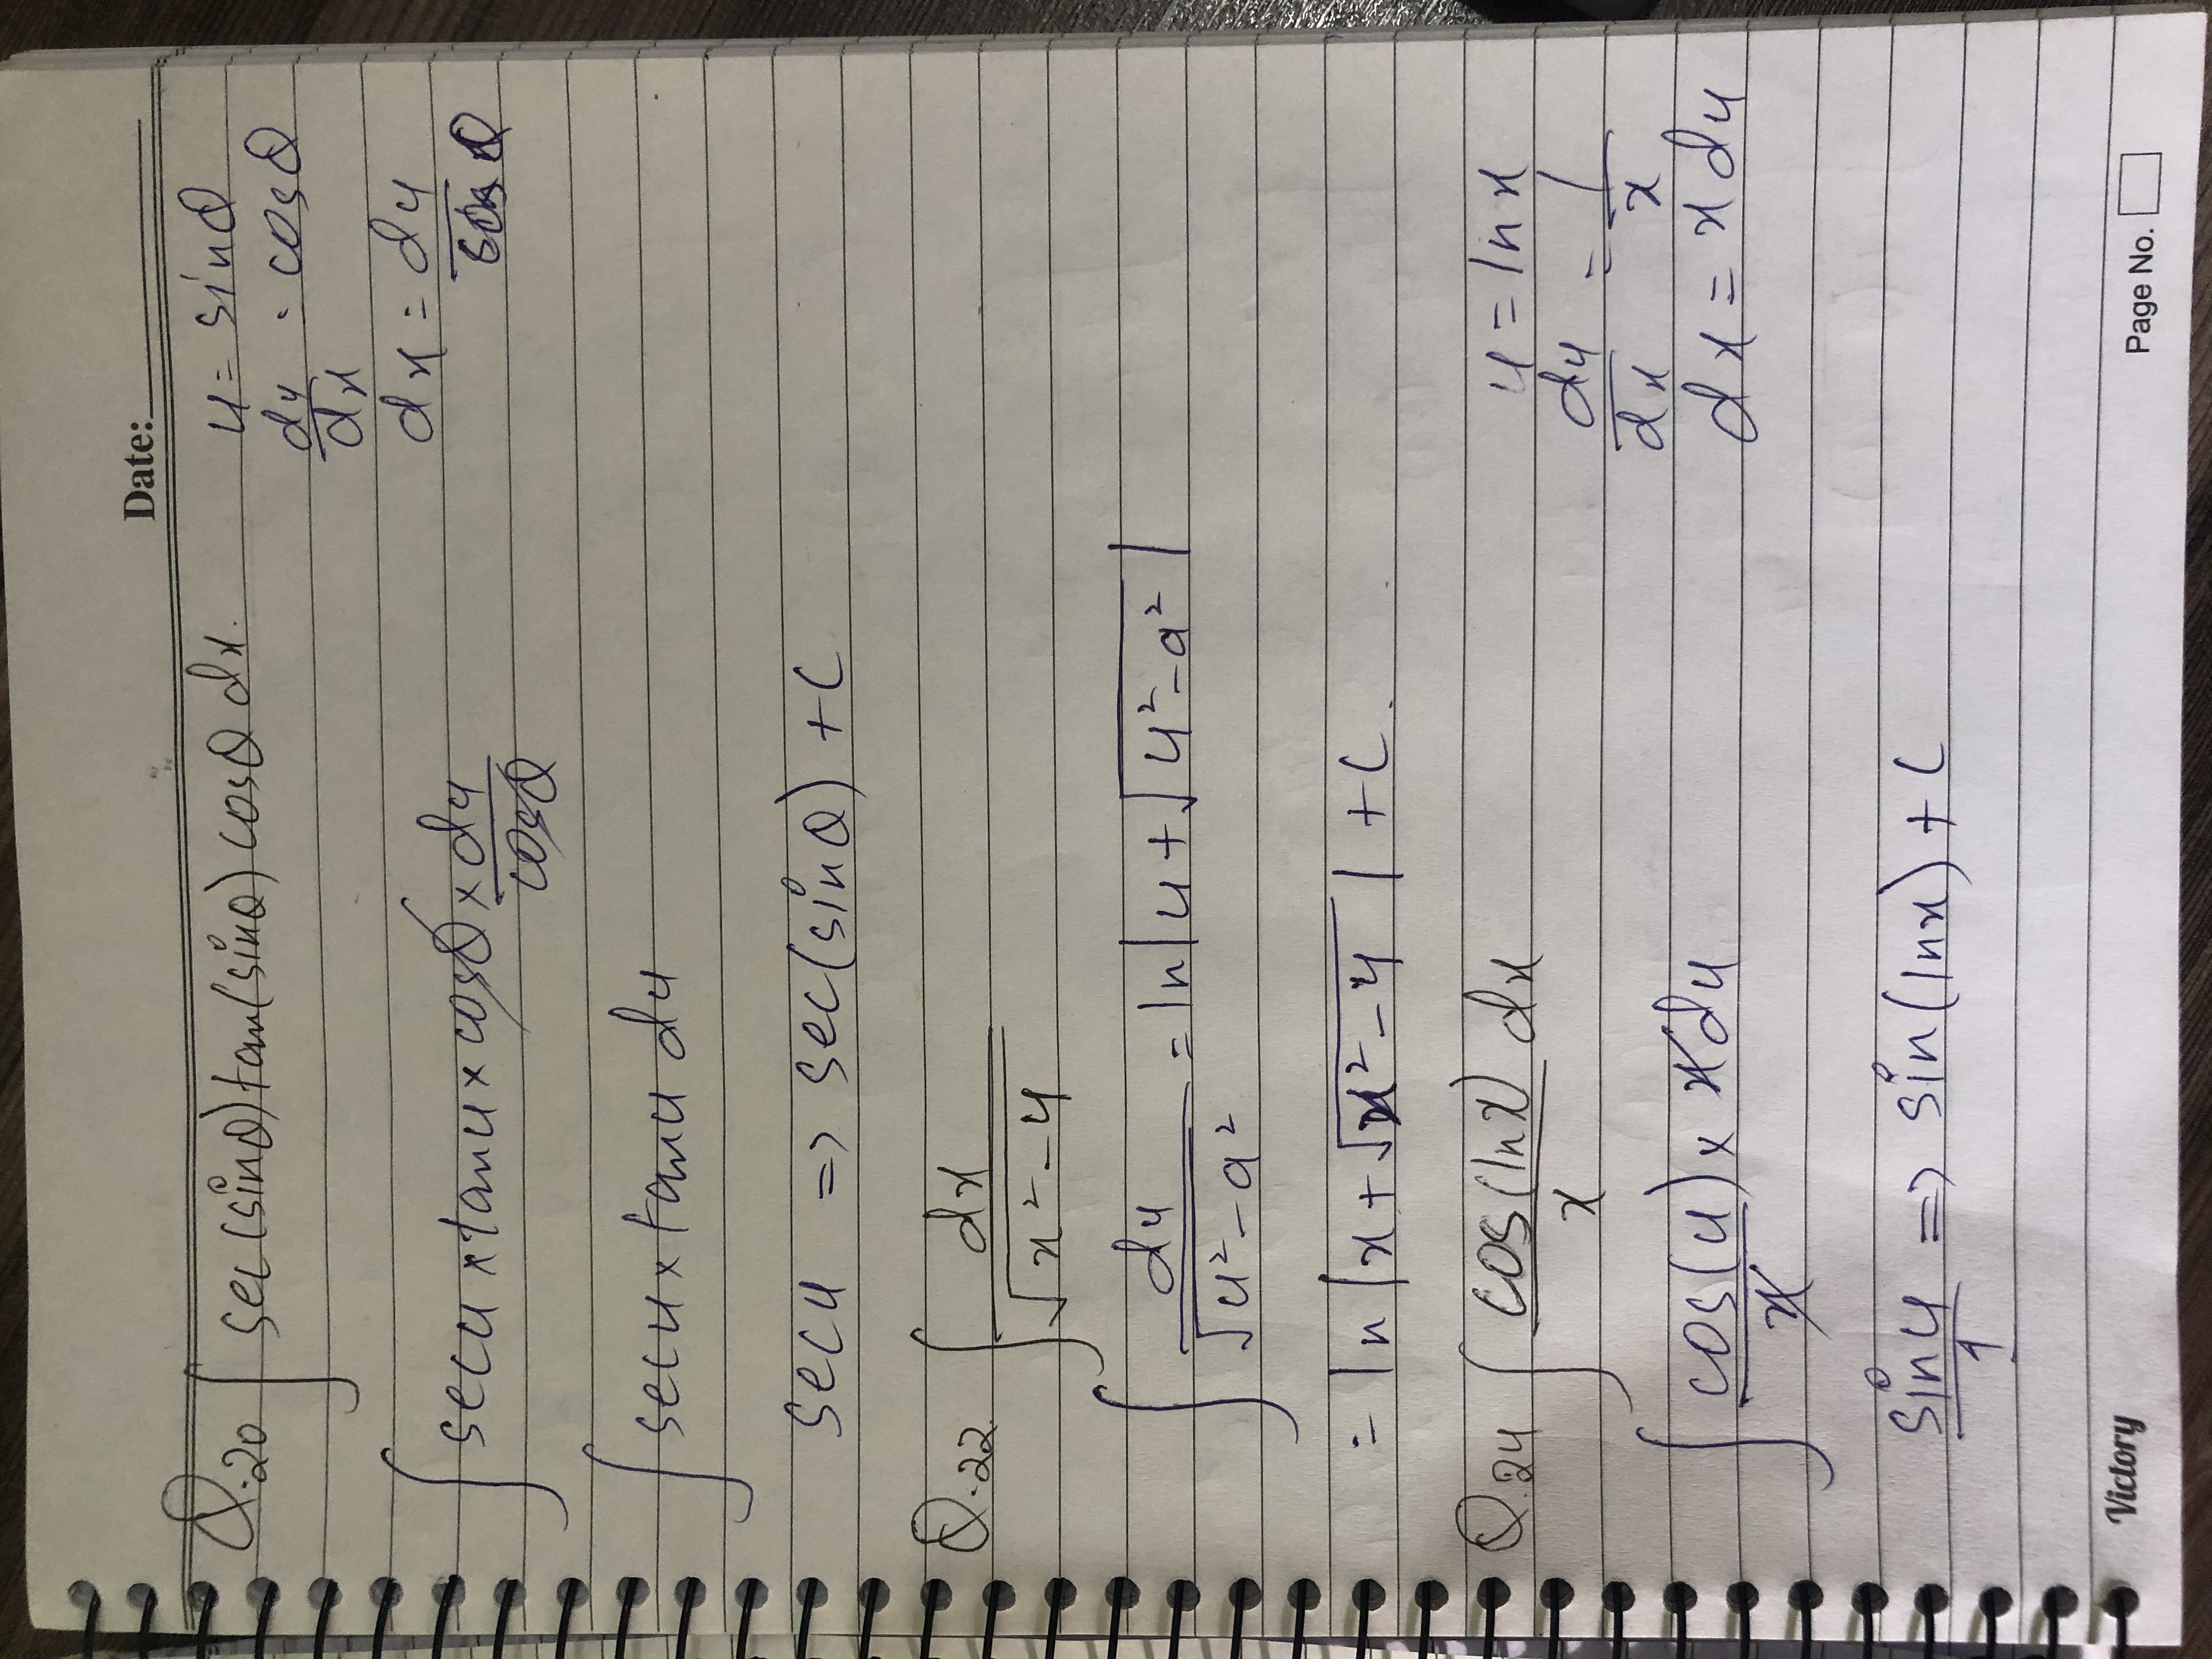 Date:
Q.20 ∫ sec(sinθ)tan(sinθ) cosθ dx.
u = sinθ
du/dx = cosθ
dx = du/cosθ
∫ secu × tanu × cosθ × du/cosθ
∫ secu × tanu du
secu => sec(sinθ) + C
Q.22. ∫ dx/√(x² - 4)
∫ du/√(u² - a²) = ln|u + √(u² - a²)|
= ln|x + √(x² - 4)| + C.
Q.24 ∫ cos(lnx)/x dx
u = lnx
du/dx = 1/x
dx = x du
∫ cos(u)/x × x du
sinu/1 => sin(lnx) + C
Victory
Page No.